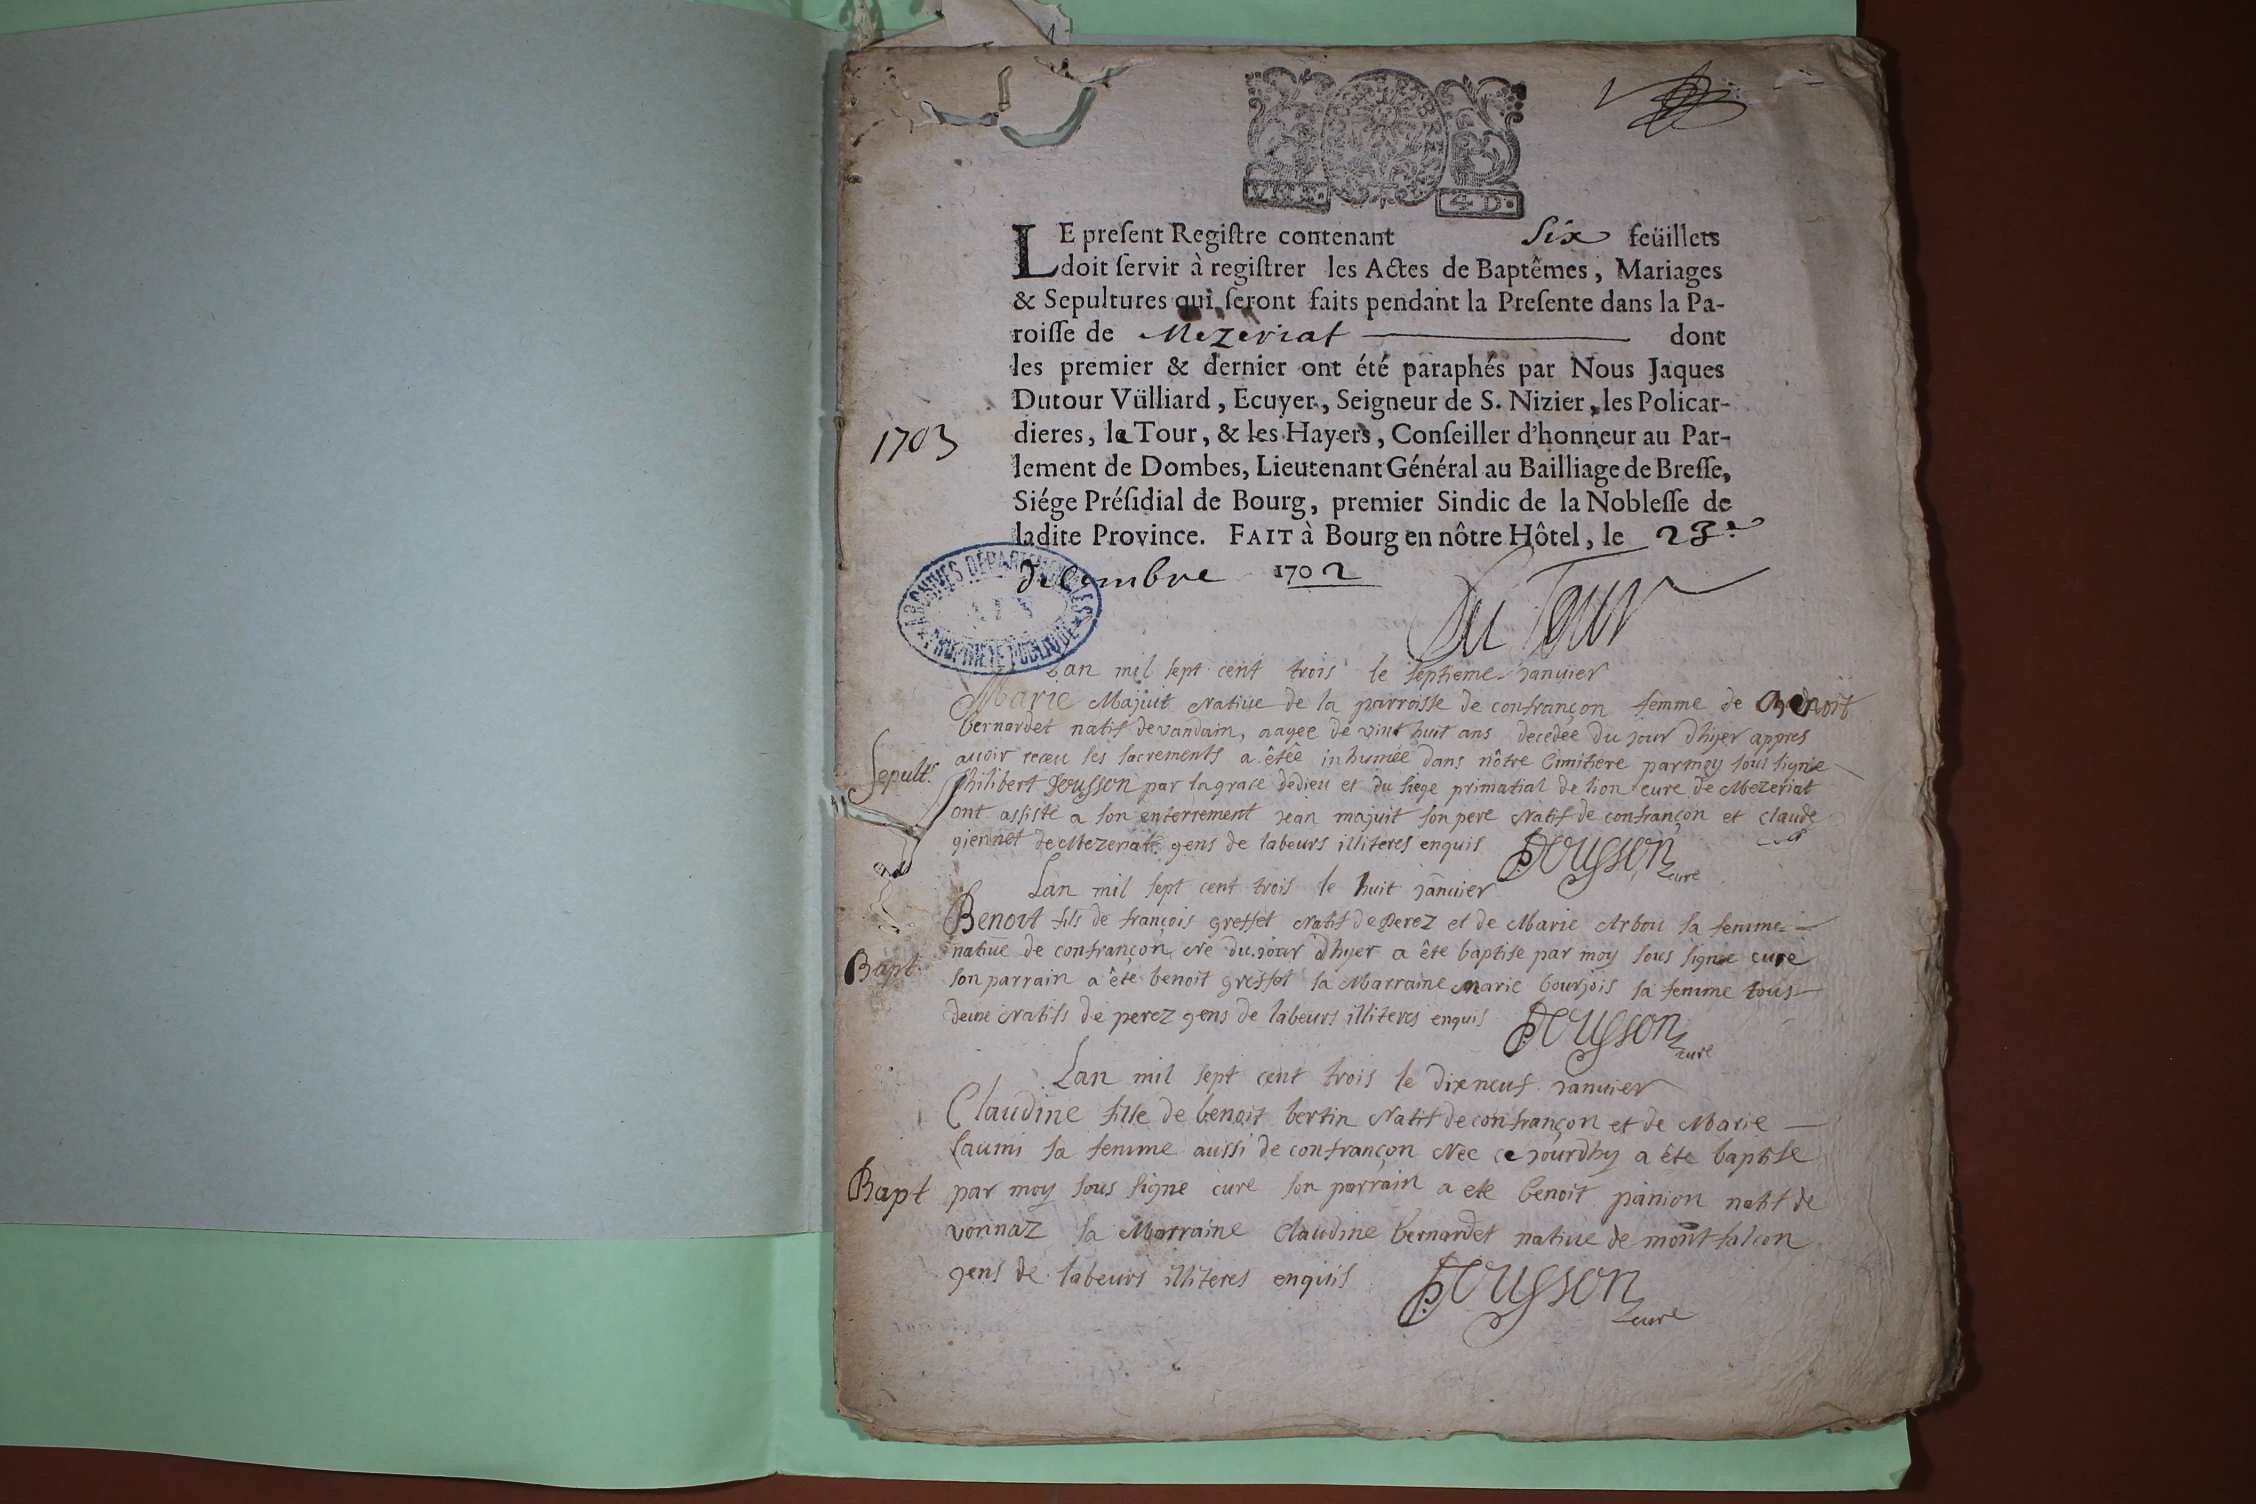 4 D.
LE preſent Regiſtre contenant Six feüillets
doit ſervir à regiſtrer les Actes de Baptêmes, Mariages
& Sepultures qui ſeront faits pendant la Preſente dans la Pa-
roiſſe de Mezeriat dont
les premier & dernier ont été paraphés par Nous Jaques
Dutour Vülliard, Ecuyer, Seigneur de S. Nizier, les Policar-
dieres, la Tour, & les Hayers, Conſeiller d'honneur au Par-
1703
lement de Dombes, Lieutenant Général au Bailliage de Breſſe,
Siége Préſidial de Bourg, premier Sindic de la Nobleſſe de
ladite Province. FAIT à Bourg en nôtre Hôtel, le 23e
decembre 1702
Du Tour
ARCHIVES DÉPARTEMENTALES
PROPRIÉTÉ PUBLIQUE
Lan mil sept cent trois le septieme janvier
Marie Majuit Native de la parroisse de confrançon femme de Benoit
bernardet natif de vandain, aagee de vint huit ans decedée du jour dhyer appres
avoir receu les sacrements a êtêe inhumée dans nôtre Cimitiere par moy sous signe
Sepult.
philibert Pousson par la grace de dieu et du siege primatial de lion cure de Mezeriat
ont assiste a son enterrement jean majuit son pere Natif de confrançon et claude
giennet de Mezeriat gens de labeurs illiteres enquis Pousson cure
Lan mil sept cent trois le huit janvier
Benoit fils de françois greffet Natif de Perez et de Marie Arbou sa femme
native de confrançon Ne du jour dhyer a ête baptise par moy sous signe cure
Bapt
son parrain a ête benoit greffet sa Marraine Marie bourjois sa femme tous
deux Natifs de perez gens de labeurs illiteres enquis Pousson cure
Lan mil sept cent trois le dixneuf janvier
Claudine fille de benoit bertin Natif de confrançon et de Marie
saumi sa femme aussi de confrançon Nee ce jourdhy a ête baptise
Bapt
par moy sous signe cure son parrain a ete benoit panion natif de
vonnaz sa Marraine Claudine bernardet native de mont falcon
gens de labeurs illiteres enquis Pousson cure